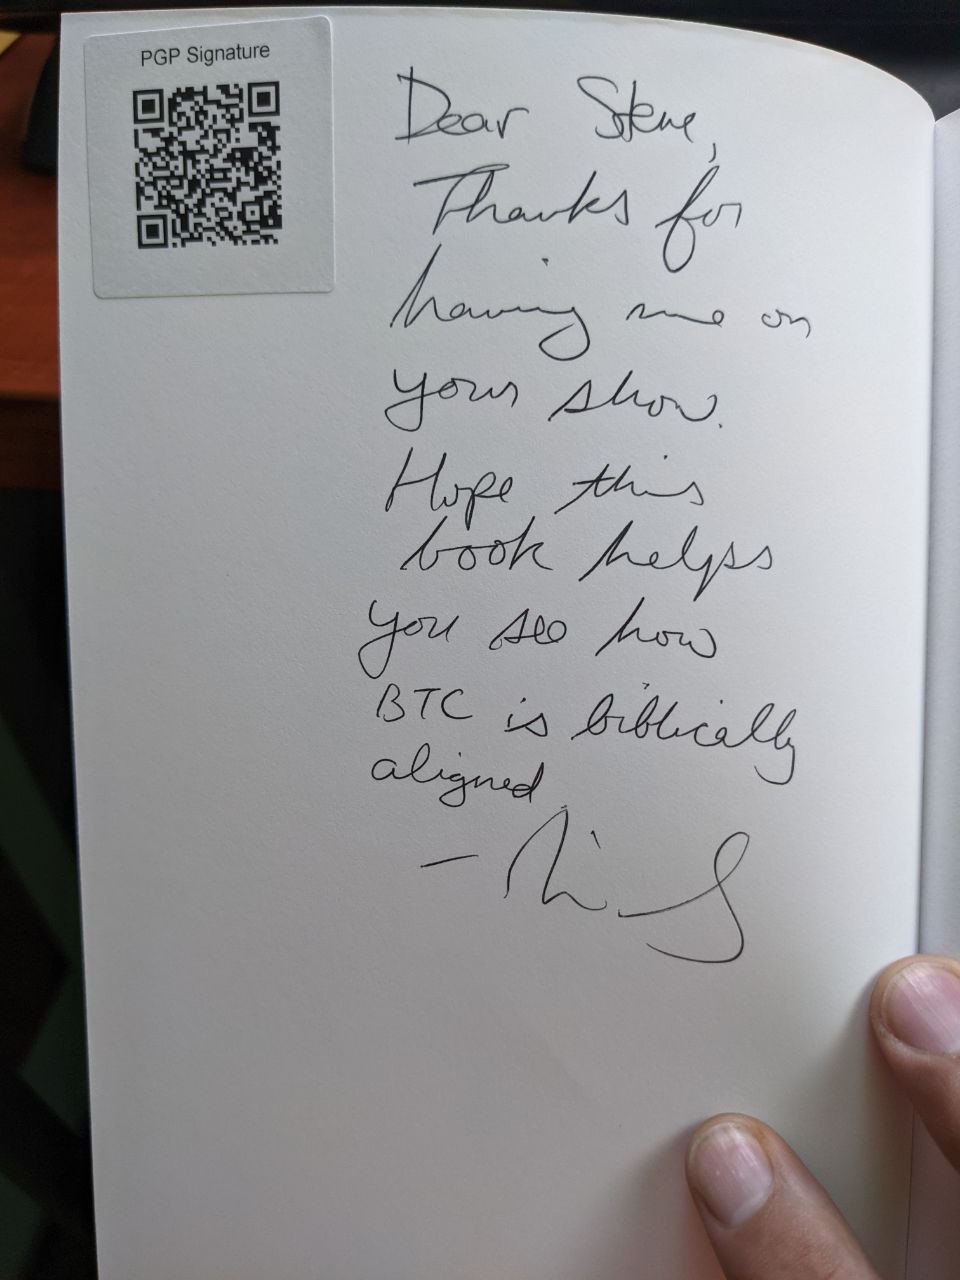 PGP Signature
Dear Steve,
Thanks for
having me on
your show.
Hope this
book helps
you see how
BTC is biblically
aligned